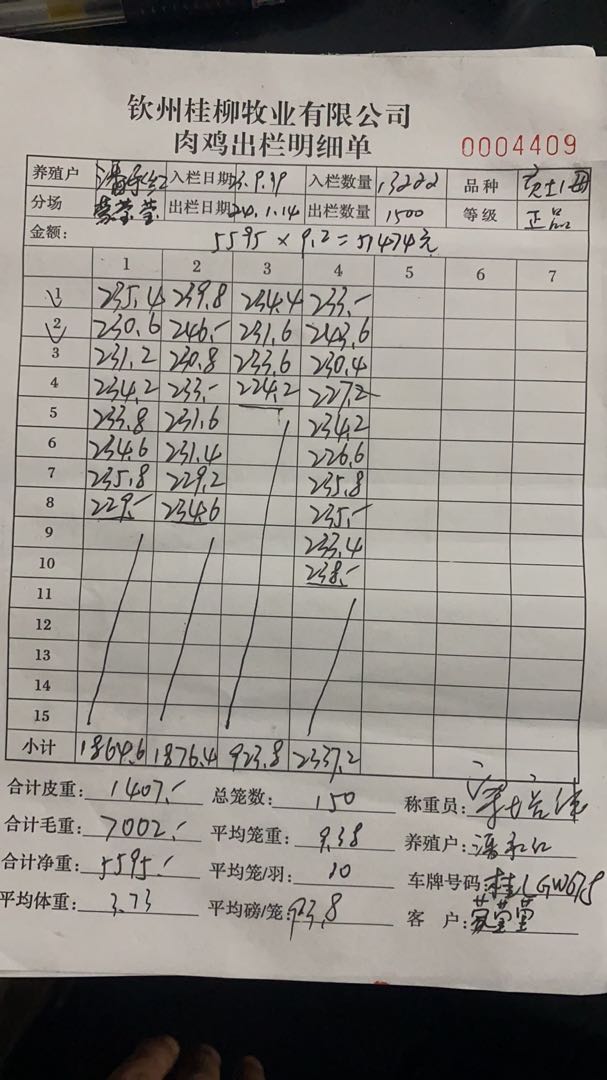 钦州桂柳牧业有限公司
肉鸡出栏明细单 0004409
养殖户 入栏日期 23.9.19 入栏数量 13222 品种
分场 蒙莹莹 出栏日期 24.1.14 出栏数量 1500 等级 正品
金额: 5595 × 9.2 = 51474元
1 2 3 4 5 6 7
1 235.4 239.8 234.4 233.-
2 230.6 246.- 231.6 243.6
3 231.2 230.8 233.6 230.4
4 234.2 233.- 224.2 227.2
5 233.8 231.6 234.2
6 234.6 231.4 226.6
7 235.8 229.2 235.8
8 229.- 234.6 235.-
9 233.4
10 238.-
11
12
13
14
15
小计 1864.6 1876.4 923.8 2337.2
合计皮重: 1407.- 总笼数: 150 称重员:
合计毛重: 7002.- 平均笼重: 9.38 养殖户:
合计净重: 5595.- 平均笼/羽: 10 车牌号码:
平均体重: 3.73 平均磅/笼: 93.8 客 户: 蒙莹莹